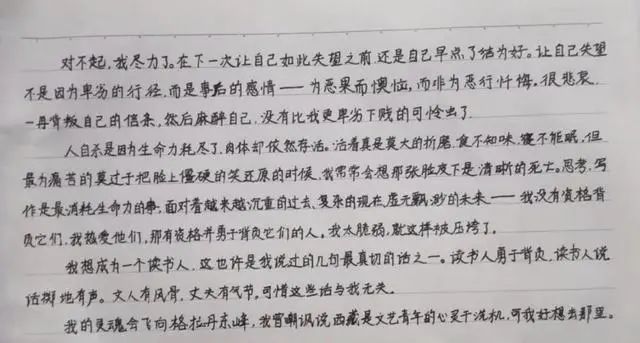 对不起,我尽力了。在下一次让自己如此失望之前,还是自己早点了结为好。让自己失望
不是因为卑劣的行径,而是事后的感情——为恶果而懊恼,而非为恶行忏悔。很悲哀,
一再背叛自己的信条,然后麻醉自己,没有比我更卑劣下贱的可怜虫了.
人自杀是因为生命力耗尽了,肉体却依然存活。活着真是莫大的折磨,食不知味,寝不能眠,但
最为痛苦的莫过于把脸上僵硬的笑还原的时候,我常常会想那张脸皮下是清晰的死亡。思考,写
作是最消耗生命力的事,面对着越来越沉重的过去、复杂的现在、虚无飘渺的未来——我没有资格背
负它们,我热爱他们,那有资格并勇于背负它们的人。我太脆弱,就这样被压垮了。
我想成为一个读书人,这也许是我说过的几句最真切的话之一。读书人勇于背负,读书人说
话掷地有声。文人有风骨,丈夫有气节,可惜这些话与我无关。
我的灵魂会飞向格拉丹东峰,我曾嘲讽说西藏是文艺青年的心灵干洗机,可我好想去那里。